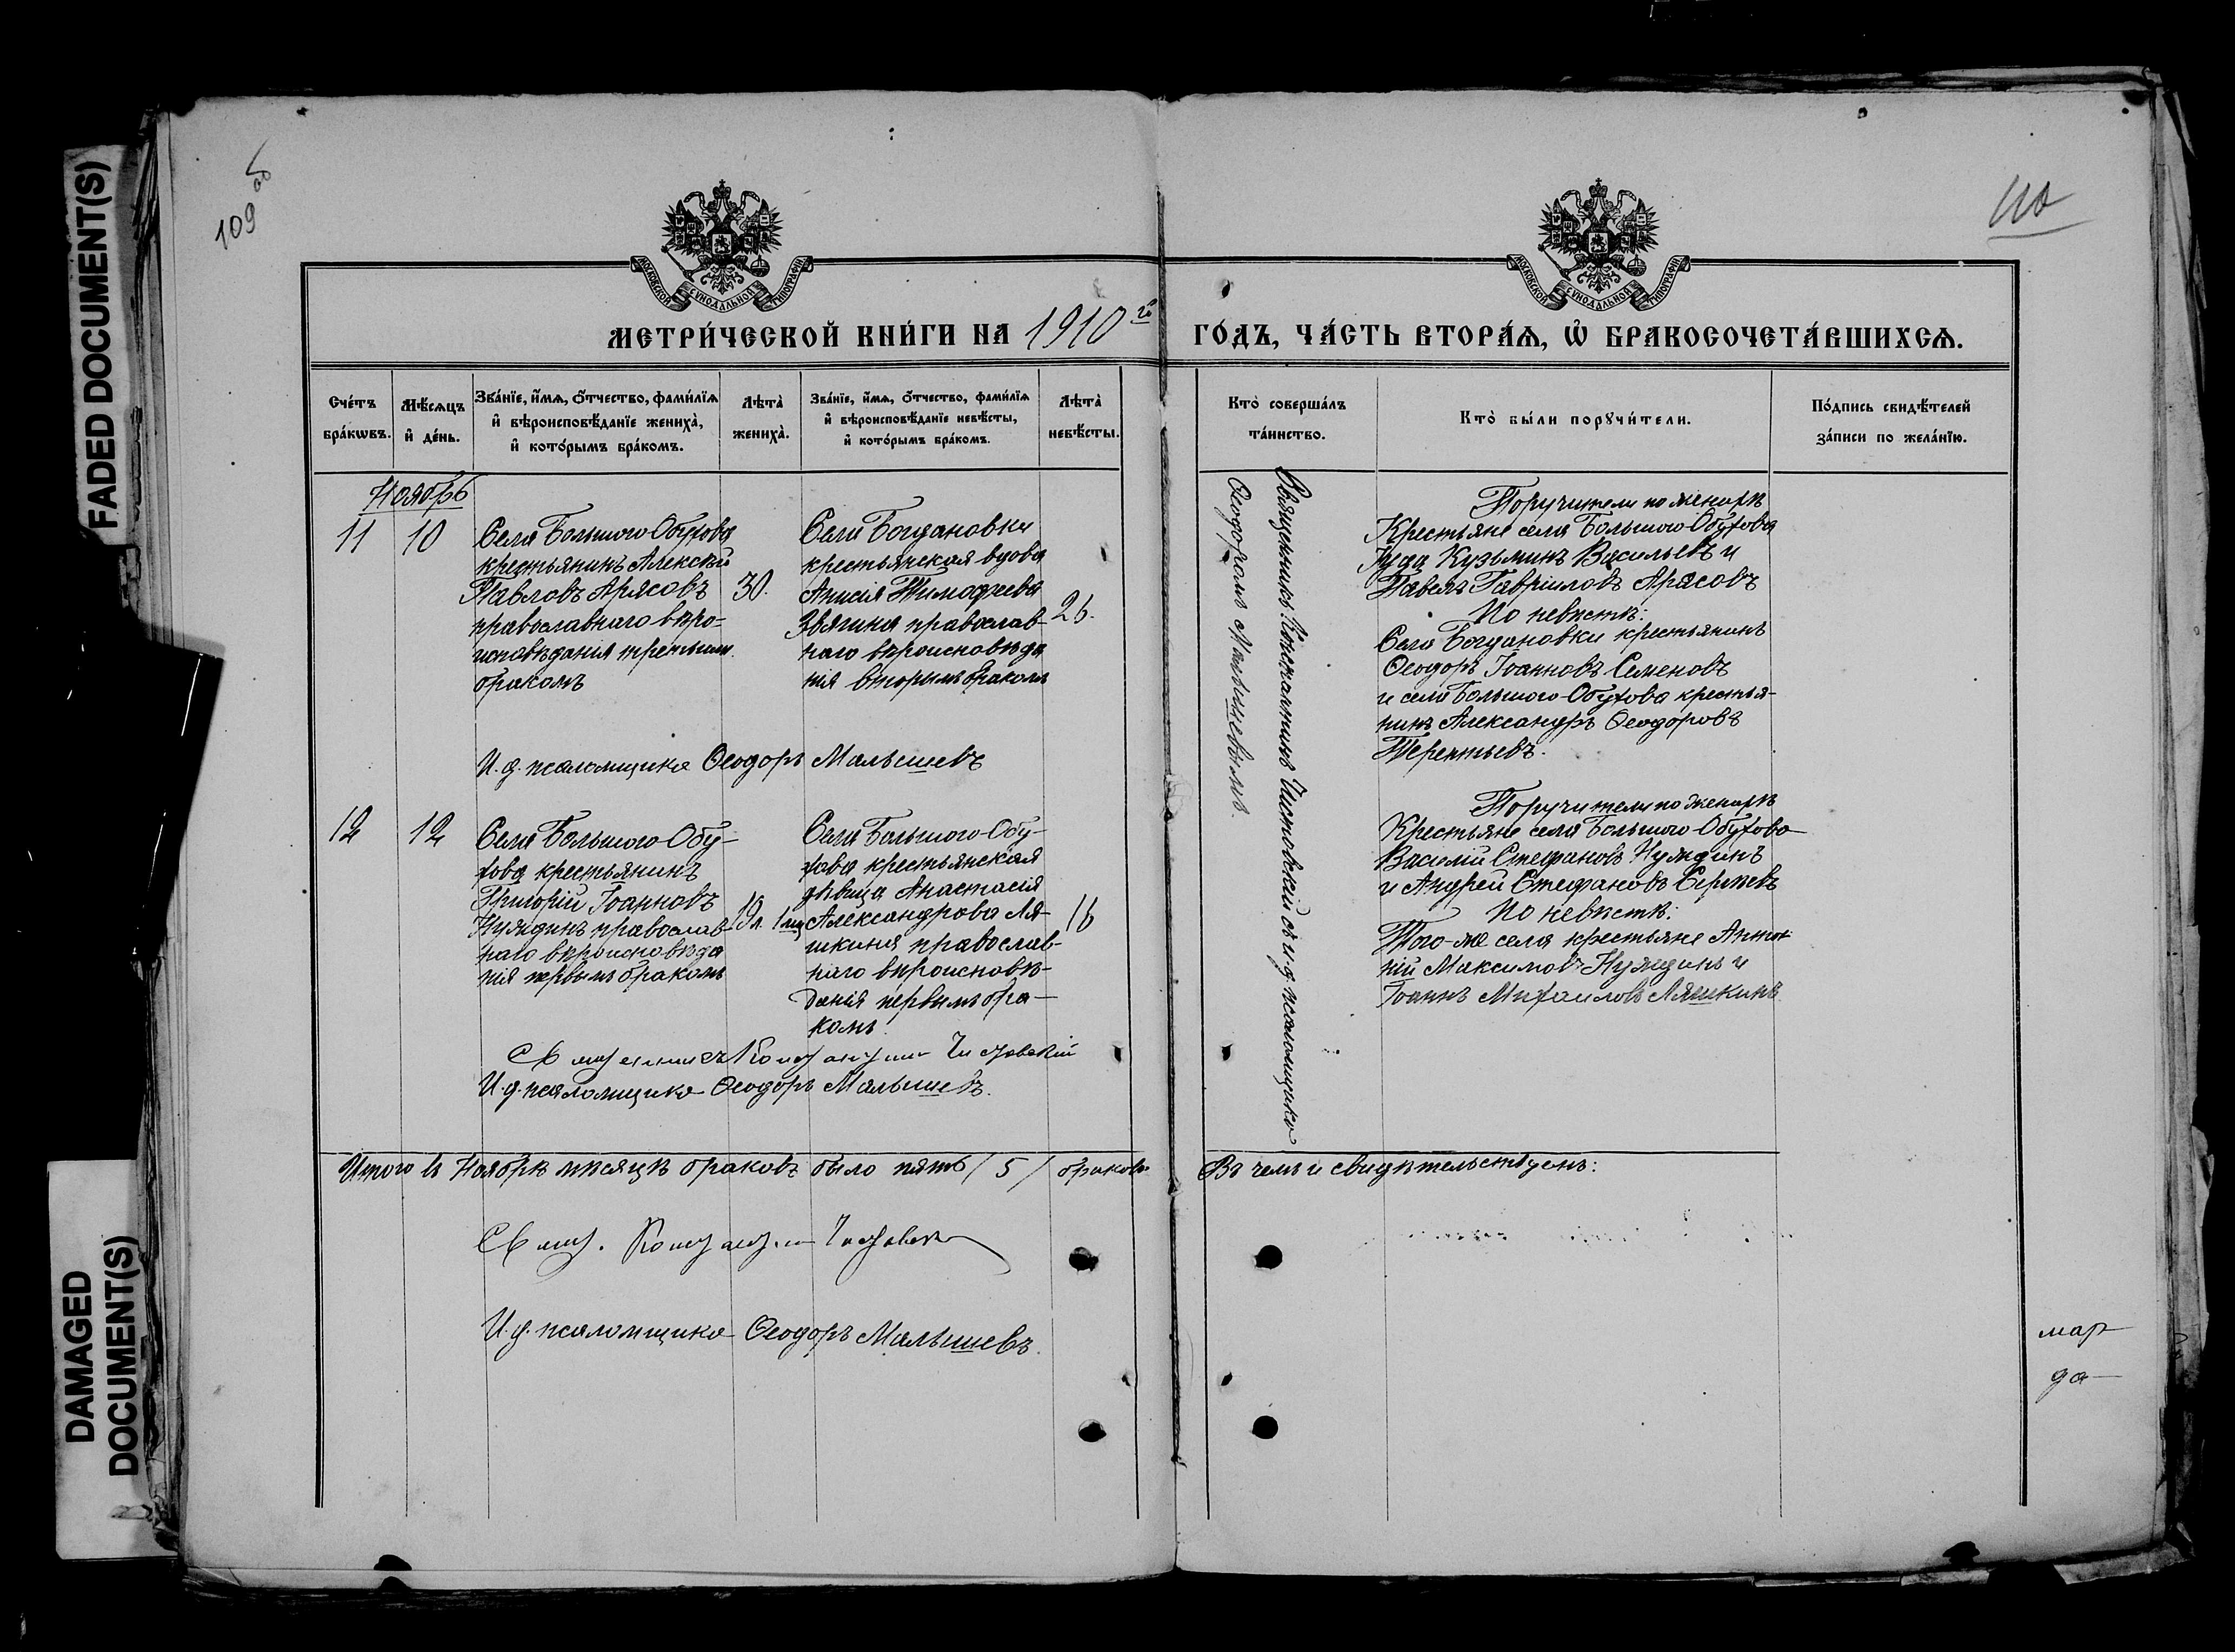 FADED DOCUMENT(S)
DAMAGED
DOCUMENT(S)
109 об
110
МОСКОВСКОЙ СѴНОДАЛЬНОЙ ТИПОГРАФІИ
МОСКОВСКОЙ СѴНОДАЛЬНОЙ ТИПОГРАФІИ
МЕТРИ́ЧЕСКОЙ КНИ́ГИ НА 1910 го
ГО́ДЪ, ЧА́СТЬ ВТОРА́Ѧ, Ѽ БРАКОСОЧЕТА́ВШИХСѦ.
Сче́тъ
бра́кѡвъ.
Мѣ́сѧцъ
и҆ де́нь.
Зва́нїе, и҆́мѧ, ѻ҆́тчество, фами́лїѧ
и҆ вѣроисповѣ́данїе жениха̀,
и҆ кото́рымъ бра́комъ.
Лѣта̀
жениха̀.
Зва́нїе, и҆́мѧ, ѻ҆́тчество, фами́лїѧ
и҆ вѣроисповѣ́данїе невѣ́сты,
и҆ кото́рымъ бра́комъ.
Лѣта̀
невѣ́сты.
Кто̀ соверша́лъ
та́инство.
Кто̀ бы́ли порꙋчи́тели.
По́дпись свидѣ́телей
за́писи по жела́нїю.
Ноябрь
11
10
Села Большого-Обухова
крестьянинъ Алексѣй
Павловъ Арясовъ
православнаго вѣро-
исповѣданія третьимъ
бракомъ
30.
Села Богдановки
крестьянская вдова
Анисія Тимофеева
Звягина православ-
наго вѣроисповѣда
нія вторымъ бракомъ
26.
И. д. псаломщика Ѳеодоръ Малышевъ
Священникъ Константинъ Чистовскій съ и. д. псаломщика
Ѳеодоромъ Малышевымъ.
Поручители по женихѣ
Крестьяне села Большого-Обухова
Іуда Кузьминъ Васильевъ и
Павелъ Гавріиловъ Арясовъ
По невѣстѣ:
Села Богдановки крестьянинъ
Ѳеодоръ Іоанновъ Семеновъ
и села Большого-Обухова крестья-
нинъ Александръ Ѳеодоровъ
Терентьевъ.
12
12
Села Большого-Обу-
хова крестьянинъ
Григорій Іоанновъ
Нуждинъ православ-
наго вѣроисповѣда
нія первымъ бракомъ
Села Большого-Обу-
хова крестьянская
дѣвица Анастасія
Александрова Ля-
шкина православ-
наго вѣроисповѣ-
данія первымъ бра-
комъ
16
Священникъ Константинъ Чистовскій
И. д. псаломщика Ѳеодоръ Малышевъ.
Поручители по женихѣ
Крестьяне села Большого-Обухова
Василій Стефановъ Нуждинъ
и Андрей Стефановъ Сергѣевъ
По невѣстѣ:
Того-же села крестьяне Антон
ній Максимовъ Нуждинъ и
Іоаннъ Михаиловъ Ляшкинъ.
Итого въ Ноябрѣ мѣсяцѣ браковъ было пять / 5 / браковъ.
Въ чемъ и свидѣтельствуемъ:
Свящ. Константинъ Чистовскій
И. д. псаломщика Ѳеодоръ Малышевъ.
мар
да